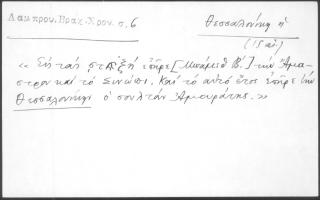 Λαμπρου, Βραχ. Χρον. σ. 6
Θεσσαλονίκη ἡ
(15 αἰ.)
« Εἰς τάς ͵ϛ ἐπῆρε [Μπάμεθ Β΄.] τὴν Ἄμα-
στρον καὶ τὸ Σινώπι. Καὶ τὸ αὐτὸ ἔτος ἐπῆρε τὴν
Θεσσαλονίκην ὁ σουλτάν Ἀμουράτης. »